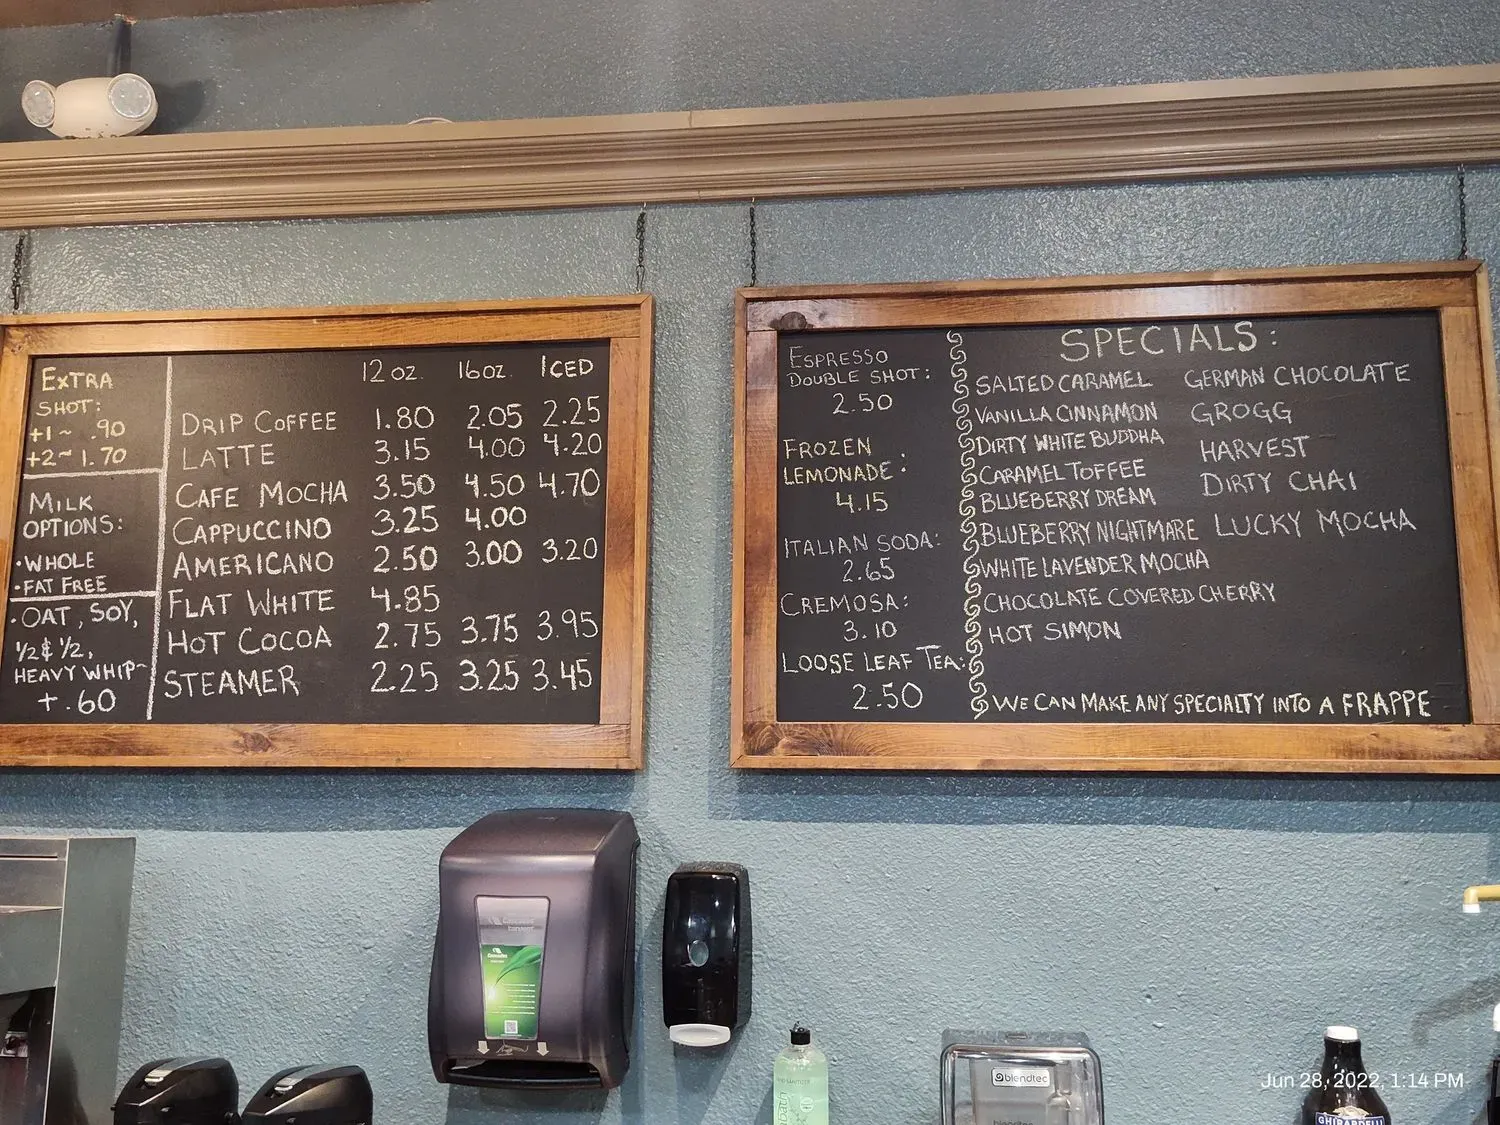 EXTRA
SHOT:
+1 ~ .90
+2 ~ 1.70
MILK
OPTIONS:
• WHOLE
• FAT FREE
• OAT, SOY,
1/2 & 1/2,
HEAVY WHIP ~
+ .60
12 OZ. 16 OZ. ICED
DRIP COFFEE 1.80 2.05 2.25
LATTE 3.15 4.00 4.20
CAFE MOCHA 3.50 4.50 4.70
CAPPUCCINO 3.25 4.00
AMERICANO 2.50 3.00 3.20
FLAT WHITE 4.85
HOT COCOA 2.75 3.75 3.95
STEAMER 2.25 3.25 3.45
ESPRESSO
DOUBLE SHOT:
2.50
FROZEN
LEMONADE:
4.15
ITALIAN SODA:
2.65
CREMOSA:
3.10
LOOSE LEAF TEA:
2.50
SPECIALS:
SALTED CARAMEL
VANILLA CINNAMON
DIRTY WHITE BUDDHA
CARAMEL TOFFEE
BLUEBERRY DREAM
BLUEBERRY NIGHTMARE
WHITE LAVENDER MOCHA
CHOCOLATE COVERED CHERRY
HOT SIMON
GERMAN CHOCOLATE
GROGG
HARVEST
DIRTY CHAI
LUCKY MOCHA
WE CAN MAKE ANY SPECIALTY INTO A FRAPPE
Cascades
tandem
Cascades
blendtec
blendtec
GHIRARDELLI
Jun 28, 2022, 1:14 PM